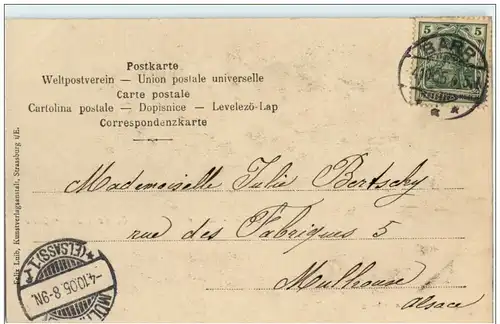 Postkarte
Weltpostverein — Union postale universelle
Carte postale
Cartolina postale — Dopisnice — Levelező-Lap
Correspondenzkarte
Mademoiselle Julie Bertschy
rue des Fabriques 5
Mulhouse
Alsace
Felix Luib, Kunstverlagsanstalt, Strassburg i/E.
5 5
BARR
(ELSASS)
-4.10.05.8-9N.
MÜL